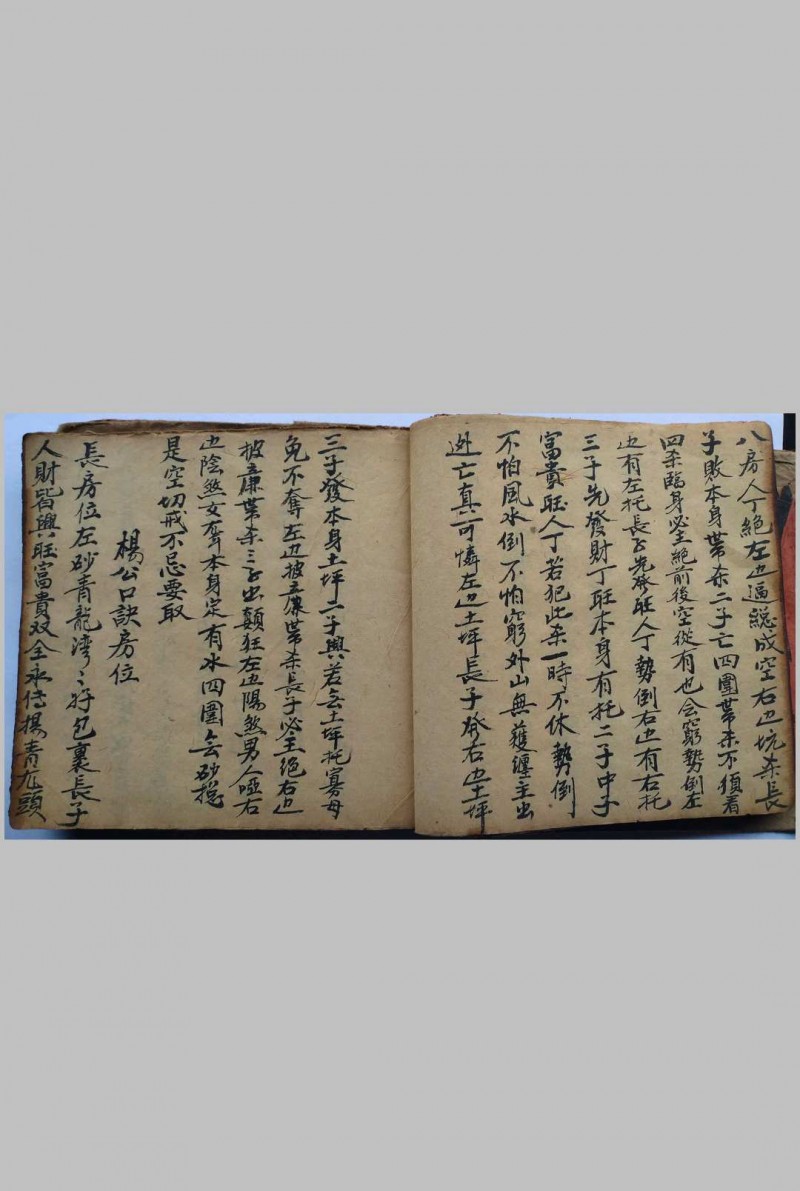 八房人丁絕左边逼總成空右边坑杀長
子敗本身帶杀二子亡四圍帶杀不須看
四杀臨身必主絕前後空從有也会窮勢倒左
边有左托長子先發旺人丁勢倒右边有右托
三子先發財丁旺本身有托二子中子
富貴旺人丁若犯此杀一時不休勢倒
不怕風水倒不怕窮外山無護纏主出
逃亡真可憐左边土坪長子發右边土坪
三子發本身土坪二子興若無土坪托寡母
免不奪左边披廉帶杀長子必主絕右边
披廉帶杀三子出顛狂左边陽煞男人啞右
边陰煞女奔本身定有水四圍無砂總
是空切戒不忌要取
楊公口訣房位
長房位左砂青龍湾々好包裹長子
人財皆興旺富貴双全永傳揚青龙頭